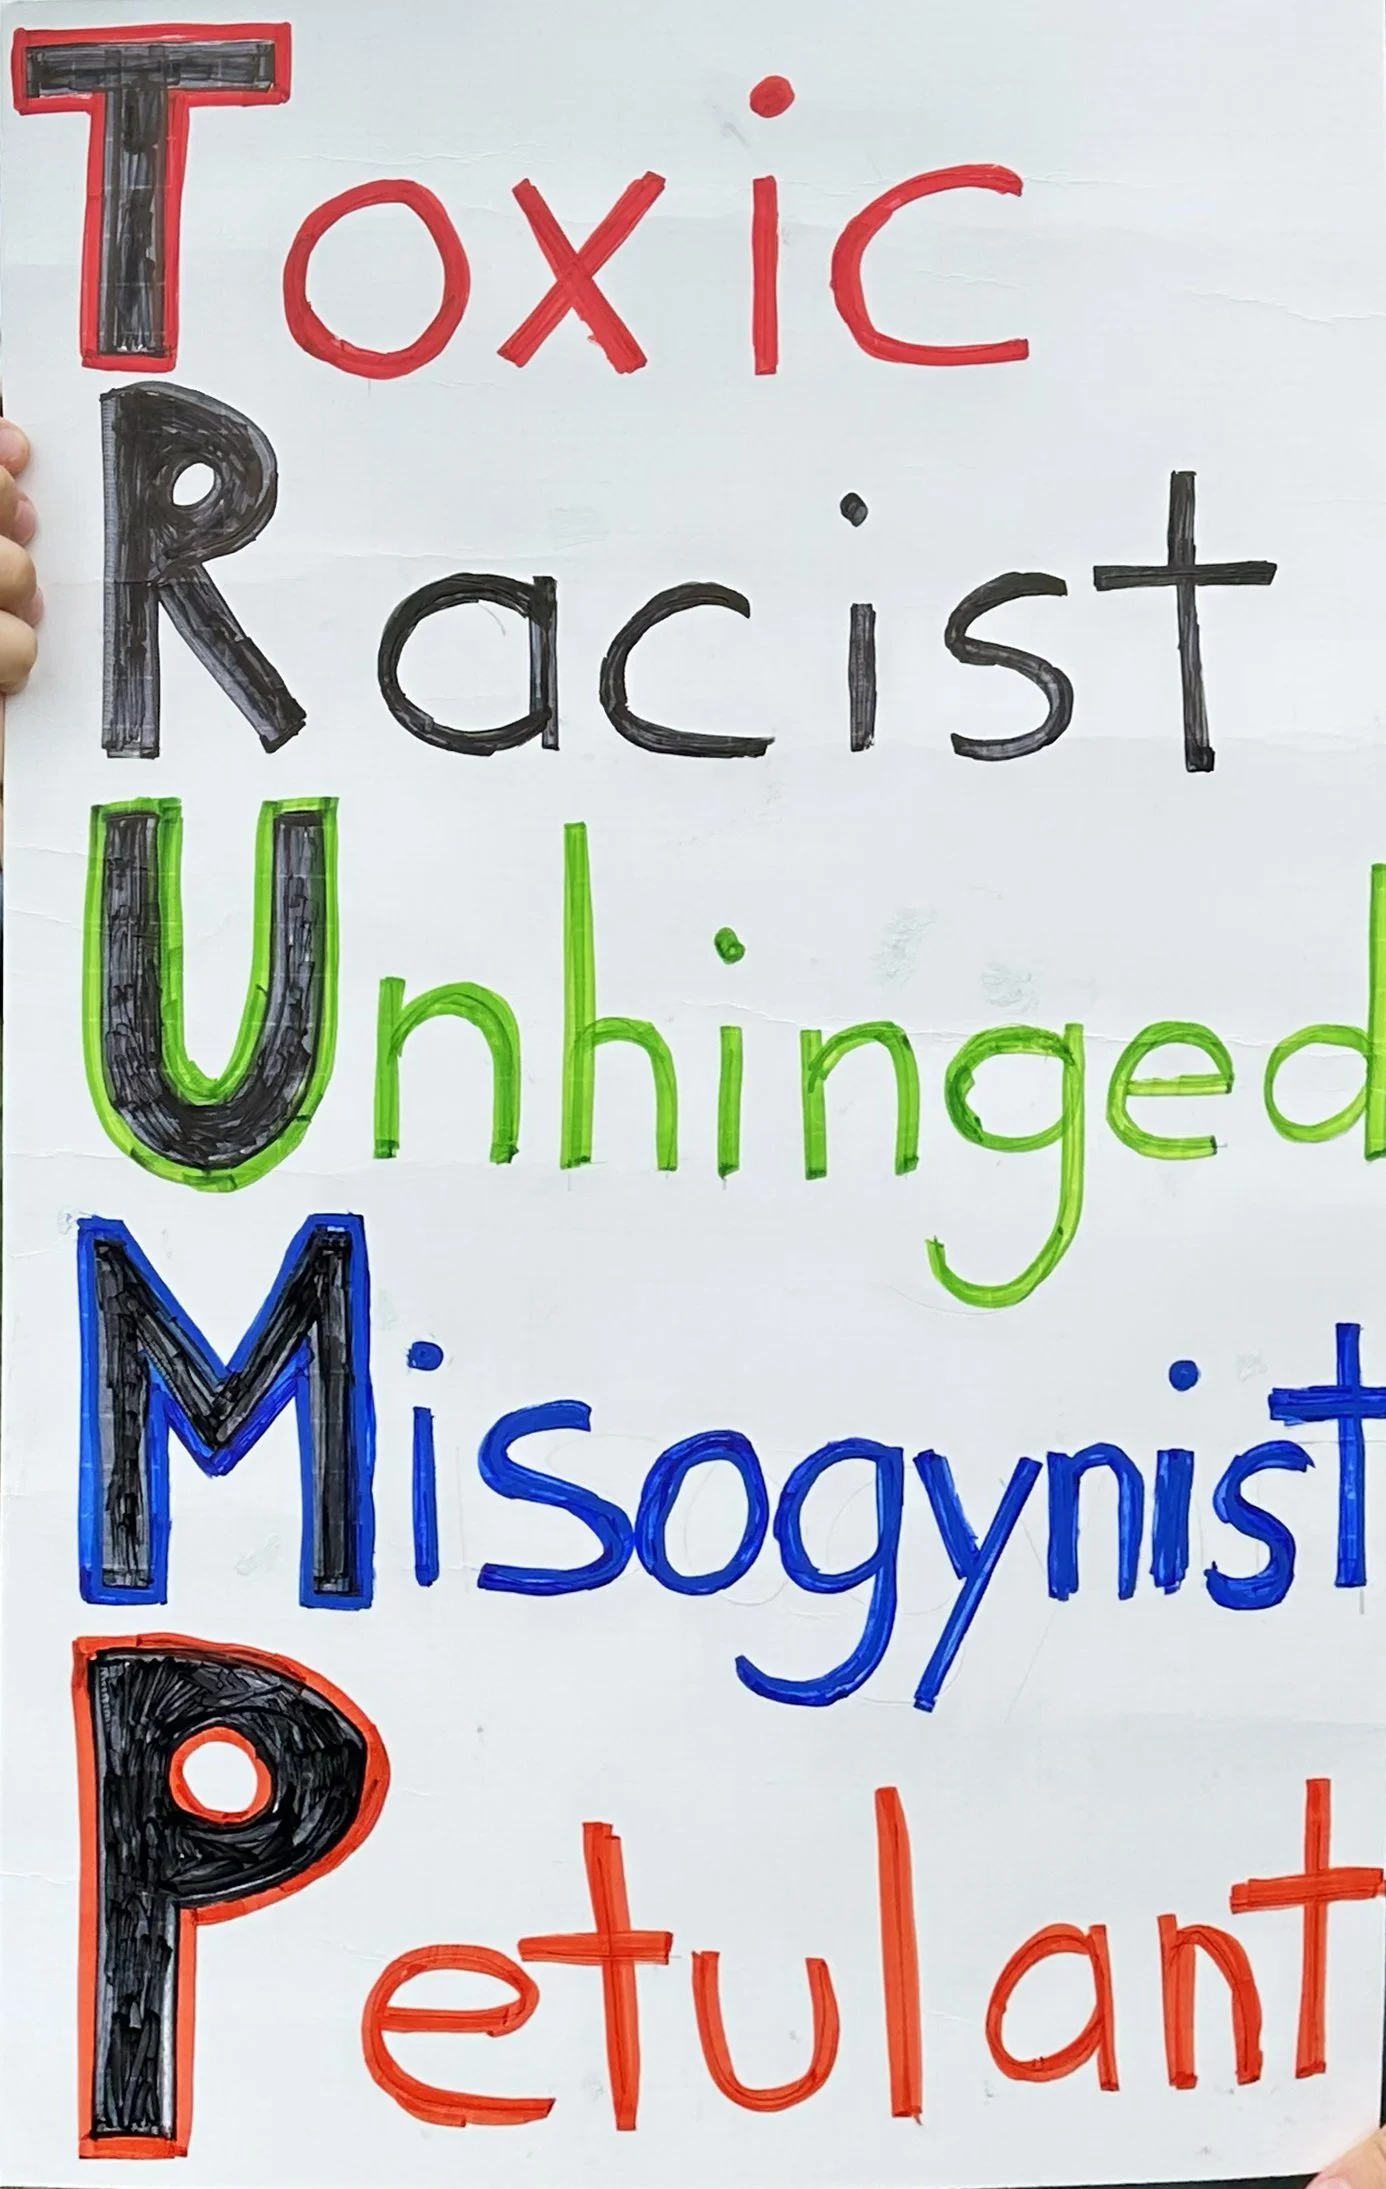 Toxic
Racist
Unhinged
Misogynist
Petulant